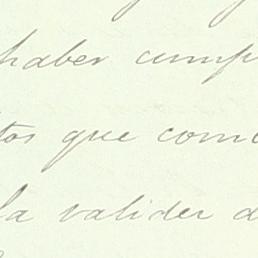 haber cump
tos que como
la valider d